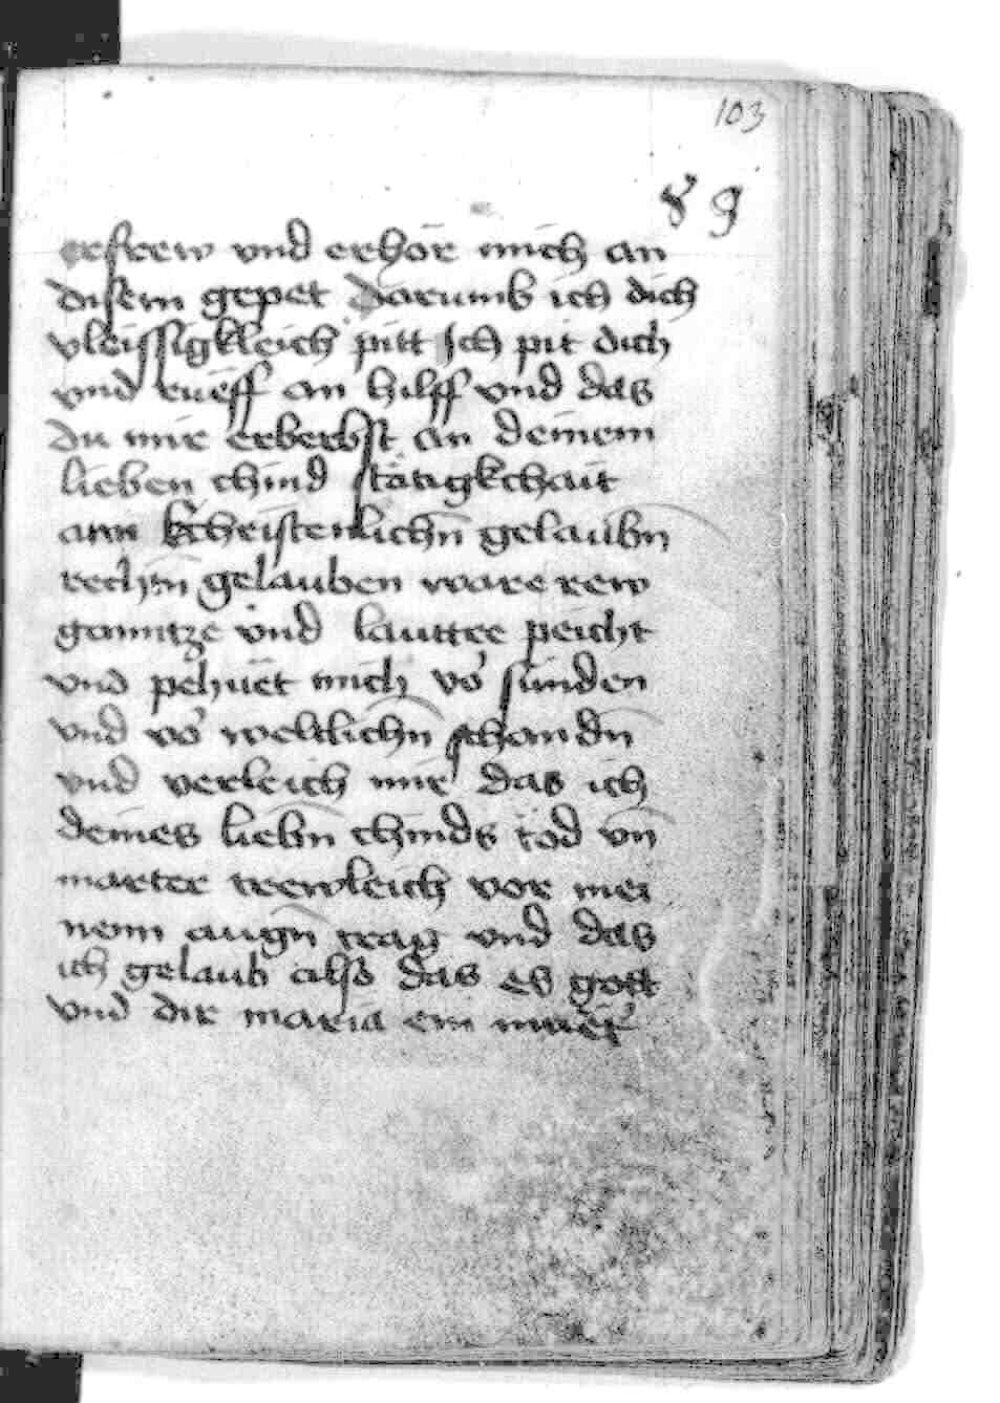 103
89
erfrew vnd erhör mich an
disem gepet Darumb ich dich
vleissigkleich pitt Ich pit dich
vnd rueff an hilff vnd das
du mir erberbst an deinem
lieben chind stätigkchait
ann kcheistenlichn̄ gelaubn̄
rechtn̄ gelauben ware rew
ganntze vnd lautter peicht
vnd pehüet mich vo᷑ sünden
vnd vo᷑ weltlichn̄ schandn̄
vnd verleich mir das ich
deines liebn̄ chinds tod vn̄
marter trewleich vor mei
nem augn̄ trag vnd das
ich gelaub also das es gott
vnd dir maria ein